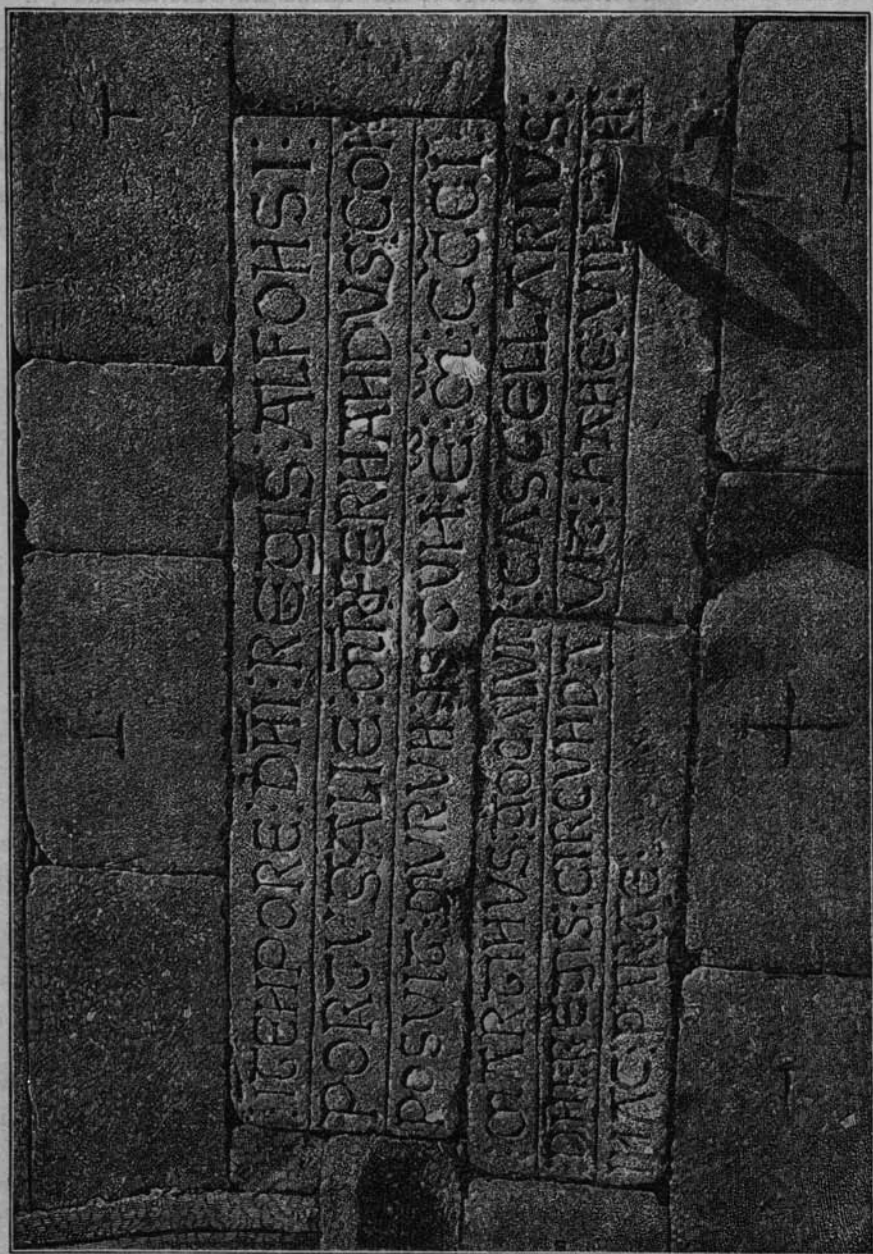 :ITEMPORE:DNI:REGIS:ALFONSI:
PORTVGALIE:MR:FERNANDVS:COI
POSVIT:MVRVM:E:M:CCCI
MARTINVS::CASCELLARIVS:
DNI REGIS:CIRCVNDAVIT:HANC
INAC:PARTE: